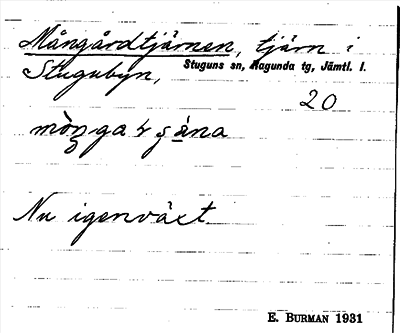 Mångårdtjärnen, tjärn i
Stugubyn, Stuguns sn, Ragunda tg, Jämtl. l.
20
Nu igenväxt
E. BURMAN 1931